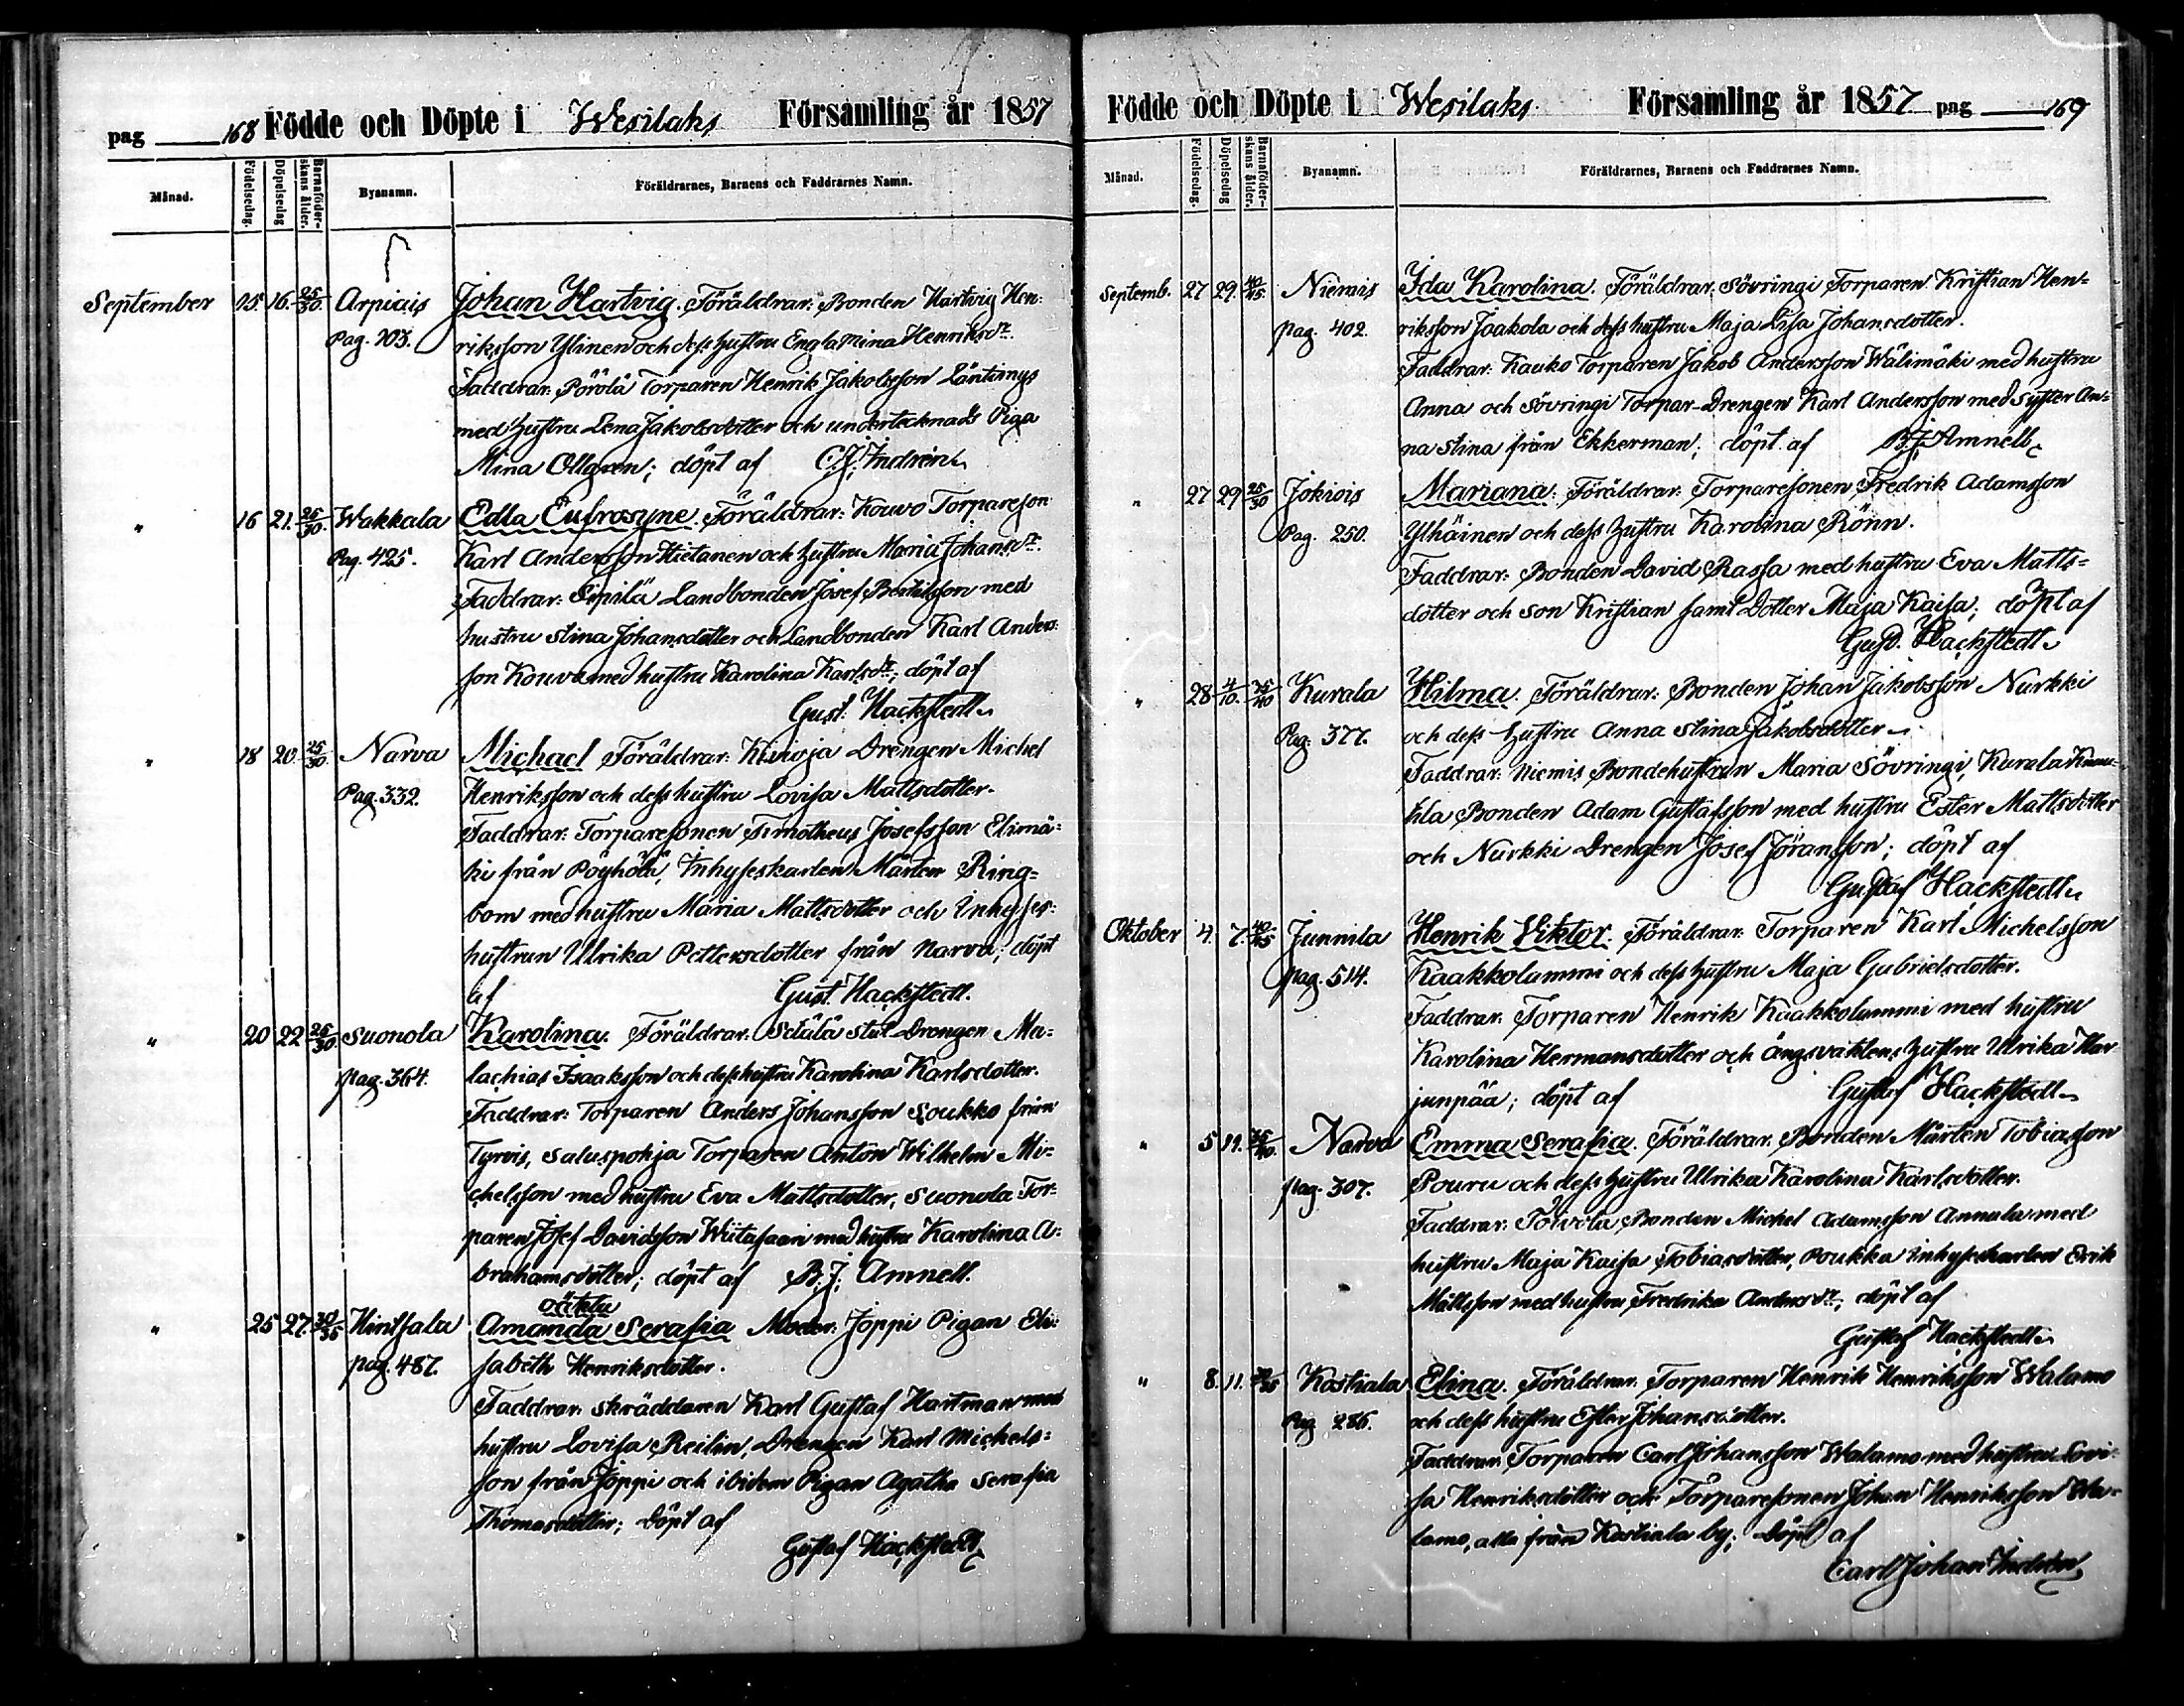 pag 168 Födde och Döpte i Wesilaks Församling år 1857
Månad. Födelsedag. Döpelsedag Barnaföderskans ålder. Byanamn. Föräldrarnes, Barnens och Faddrarnes Namn.
September 15. 16. 25/30. Arpiais Johan Hartvig. Föräldrar: Bonden Hartvig Hen-
Pag. 103. riksson Ylinen och dess hustru Engla Mina Henriksdr.
Faddrar: Pörölä Torparen Henrik Jakobsson Läntinys
med hustru Lena Jakobsdotter och undertecknads Piga
Mina Ollgren; döpt af C. J. Indrén
" 16 21. 25/30. Wakkala Edla Eufrosyne. Föräldrar: Kouvo Torpareson
Pag. 425. Karl Andersson Hietanen och hustru Maria Johansdr.
Faddrar: Sipilä Landbonden Josef Bertilsson med
hustru Stina Johansdotter och Landbonden Karl Anders-
son Kouvo med hustru Karolina Karlsdr; döpt af
Gust. Hackstedt
" 18 20. 25/30. Narva Michael Föräldrar: Kinoja Drengen Michel
Pag. 332. Henriksson och dess hustru Lovisa Mattsdotter.
Faddrar: Torparesonen Timotheus Josefsson Elimä-
ki från Pöyhölä, Inhyseskarlen Mårten Ring-
bom med hustru Maria Mattsdotter och Inhyses-
hustrun Ulrika Pettersdotter från Narva; döpt
af Gust. Hackstedt.
" 20 22 25/30. Suonola Karolina. Föräldrar: Sdälä Stat Drengen Ma-
pag. 364. lachias Isaaksson och dess hustru Karolina Karlsdotter.
Faddrar: Torparen Anders Johansson Soukko från
Tyrvis, Saluspohja Torparen Anton Wilhelm Mi-
chelsson med hustru Eva Mattsdotter, Suonola Tor-
paren Josef Davidsson Wiitasaari med hustru Karolina A-
brahamsdotter; döpt af B. J. Amnell.
oäkta
" 25 27. 30/35 Hinsala Amanda Serafia Moder: Joppi Pigan Eli-
pag. 487. sabeth Henriksdotter.
Faddrar: skräddaren Karl Gustaf Hartman med
hustru Lovisa Reilin, Drengen Karl Michels-
son från Joppi och ibidem Pigan Agatha Serafia
Thomasdotter; Döpt af
Gustaf Hackstedt
Födde och Döpte i Wesilaks Församling år 1857 pag 169
Månad. Födelsedag. Döpelsedag Barnaföderskans ålder. Byanamn. Föräldrarnes, Barnens och Faddrarnes Namn.
Septemb. 27 29. 40/45 Niemis Ida Karolina. Föräldrar: Sövringi Torparen Kristian Hen-
pag. 402. riksson Jaakola och dess hustru Maja Lisa Johansdotter.
Faddrar: Kauko Torparen Jakob Andersson Wälimäki med hustru
Anna och Sövringi Torpar-Drengen Karl Andersson med Syster An-
na Stina från Ekkerman; döpt af B. J. Amnell
" 27 29 25/30 Jokiois Mariana. Föräldrar: Torparesonen Fredrik Adamsson
Pag. 250. Ylhäinen och dess hustru Karolina Rönn.
Faddrar: Bonden David Rassa med hustru Eva Matts-
dotter och son Kristian samt Dotter Maja Kaisa; döpt af
Gust. Hackstedt
" 28 4/10. 35/40 Kurala Hilma. Föräldrar: Bonden Johan Jakobsson Nurkki
Pag. 377. och dess hustru Anna Stina Jakobsdotter
Faddrar: Niemis Bondehustrun Maria Sövringi, Kurala
Bonden Adam Gustafsson med hustru Ester Mattsdotter
och Nurkki Drengen Josef Göransson; döpt af
Gustaf Hackstedt
Oktober 4. 7. 40/45 Junnila Henrik Viktor. Föräldrar: Torparen Karl Michelsson
pag. 514. Kaakkolammi och dess hustru Maja Gabrielsdotter.
Faddrar: Torparen Henrik Kaakkolammi med hustru
Karolina Hermansdotter och ängsvaktens hustru Ulrika Har
junpää; döpt af Gustaf Hackstedt
" 5 11. 35/40. Narva Emma Serafia. Föräldrar: Bonden Mårten Tobiasson
pag. 307. Pouru och dess hustru Ulrika Karolina Karlsdotter.
Faddrar: Toivola Bonden Michel Adamsson Annala med
hustru Maja Kaisa Tobiasdotter, Poukka inhyseskarlen Erik
Mattsson med hustru Fredrika Andersdr; döpt af
Gustaf Hackstedt
" 8. 11. Kostiala Elina. Föräldrar: Torparen Henrik Henriksson Walamo
Pag. 286. och dess hustru Ester Johansdotter.
Faddrar: Torparen Carl Johansson Walamo med hustru Lovi-
sa Henriksdotter och Torparesonen Johan Henriksson Wa-
lamo, alla från Kostiala by; Döpt af
Carl Johan Indrén